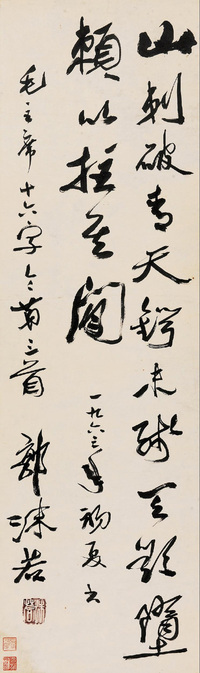 山刺破青天锷未残天欲堕
赖以拄其间
一九六三年初夏书
毛主席十六字令第三首
郭沫若